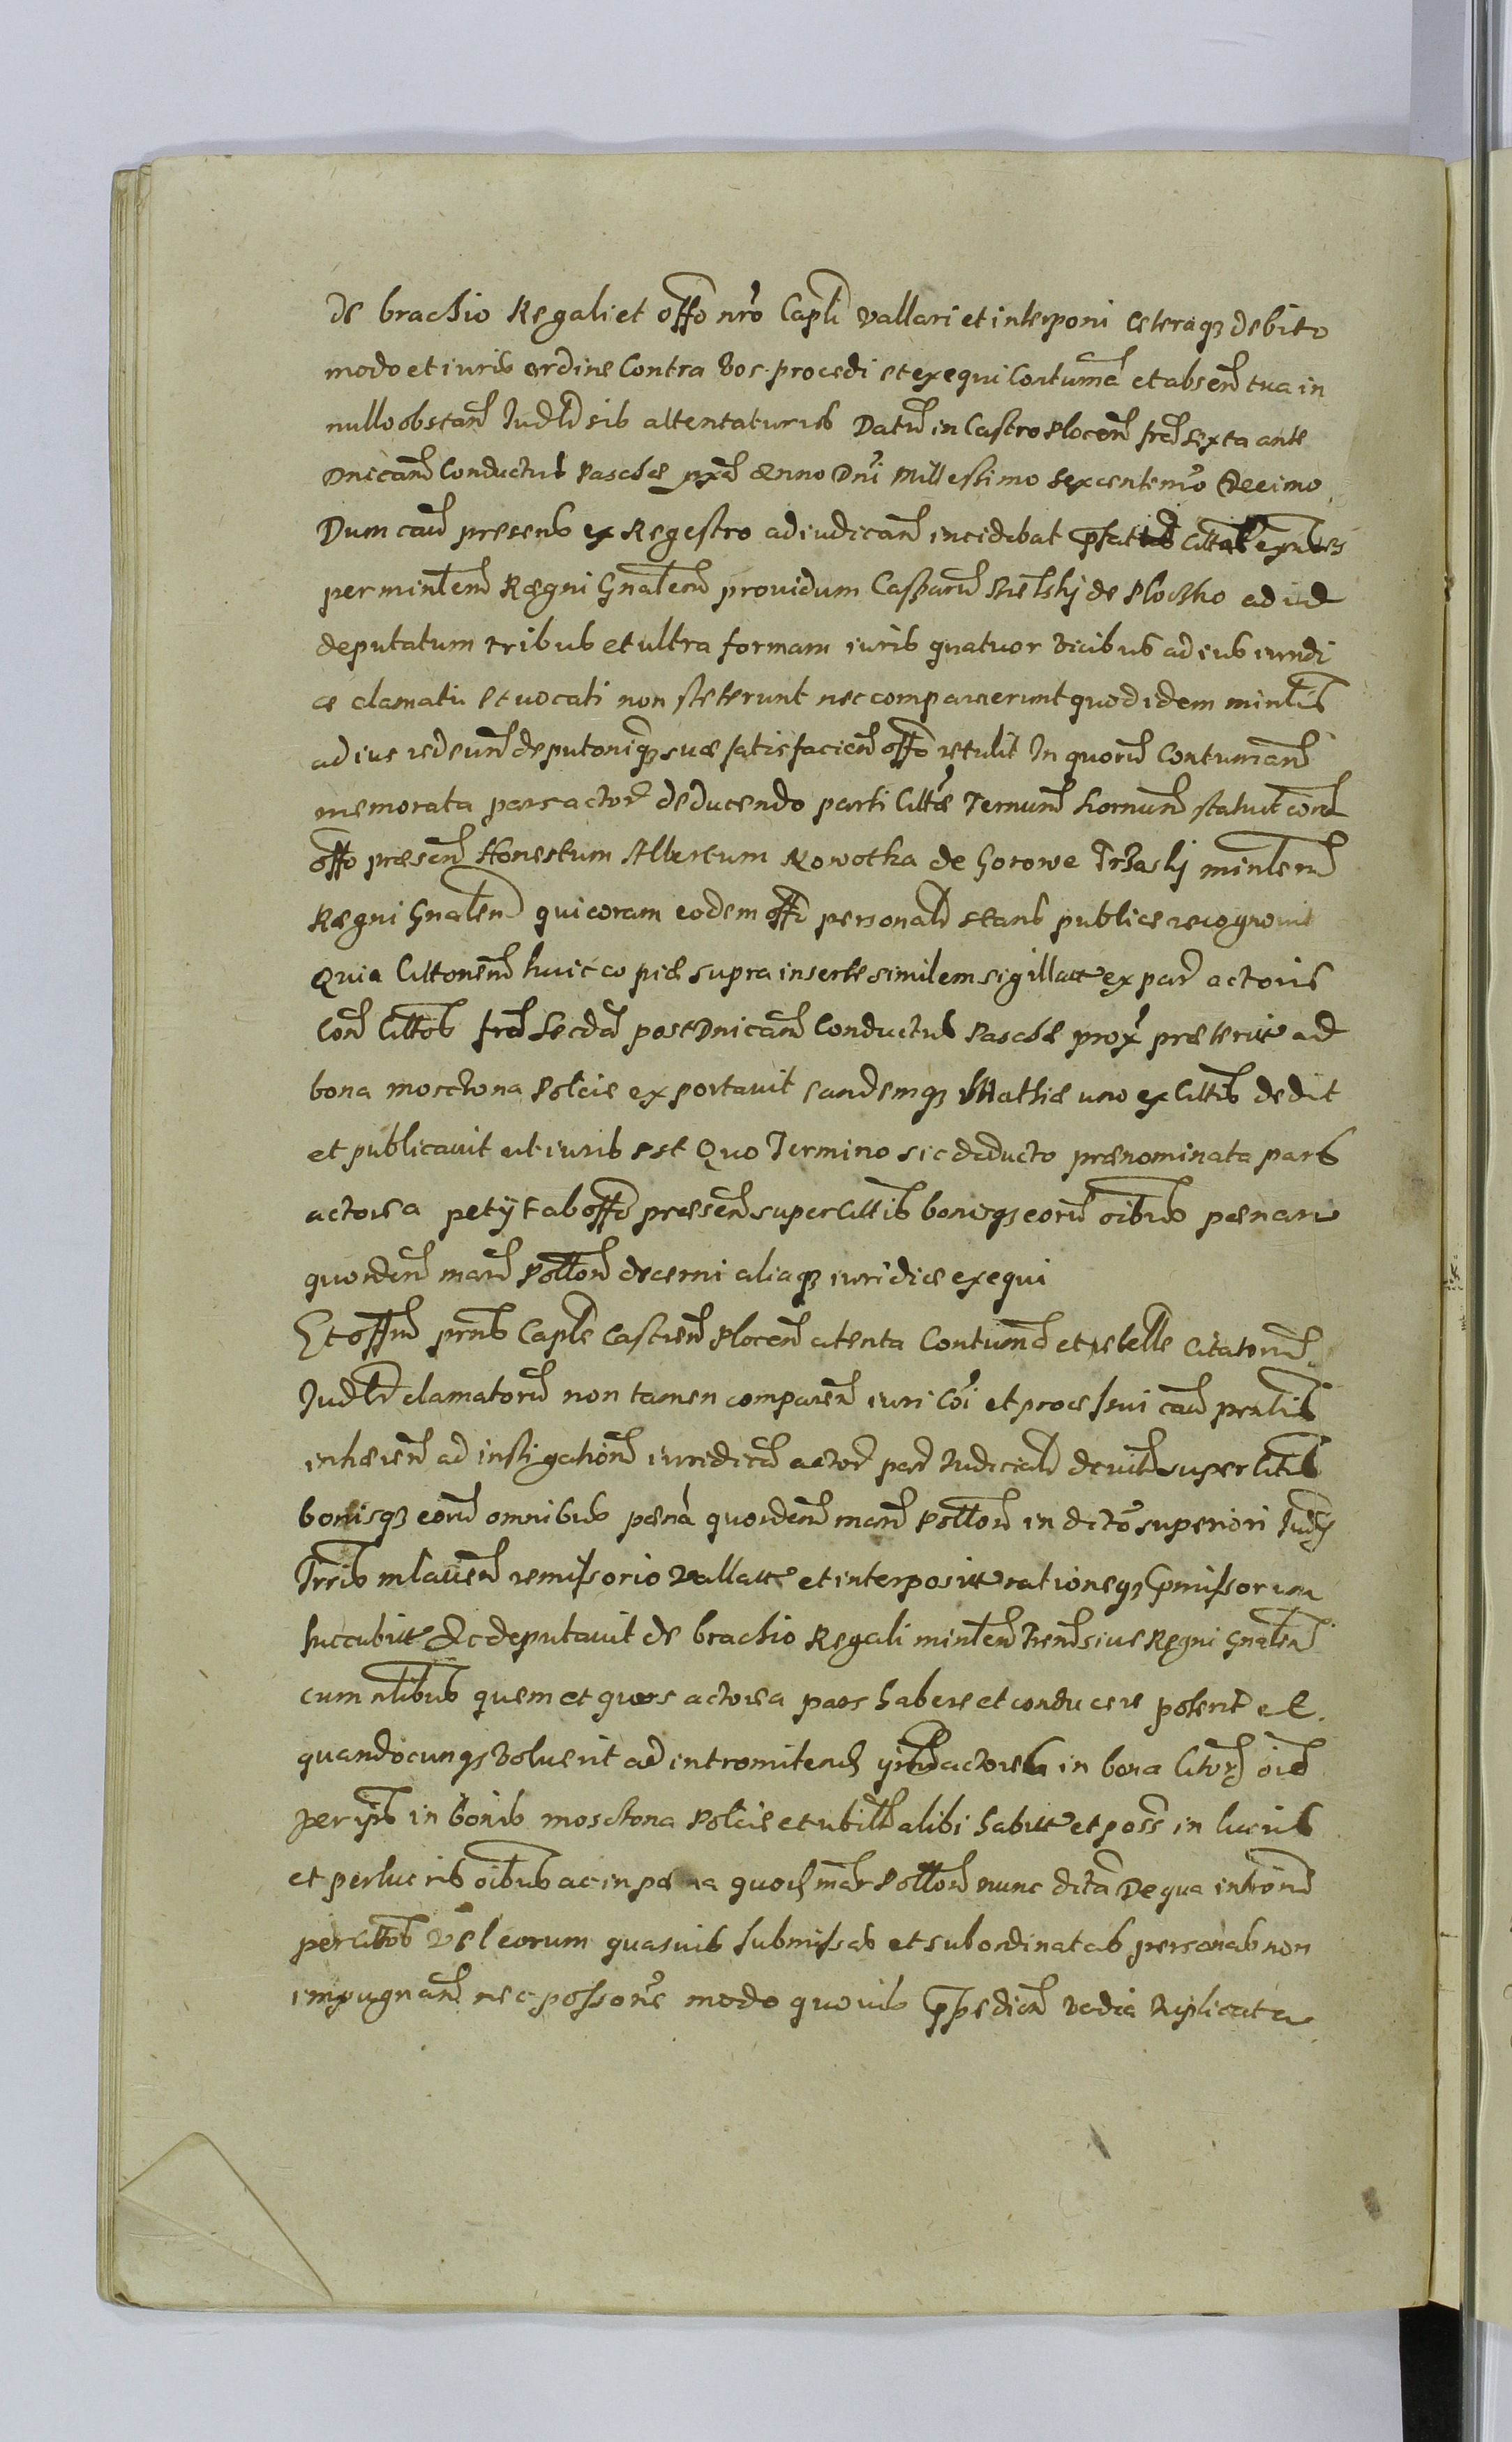 de brachio Regali et offo nro Capli vallari et interponi ceteraq debito
modo et iuris ordine Contra vos procedi et exequi Contuma et absen tua in
nullo obstan Judl sib attentaturis Datu in Castro Plocen fra sexta ante
Dnican Conductus Paschæ pxa Anno Dni Millessimo Sexcentemo Decimo
Dum cau presens ex Regestro ad iudican incidebat
per minlem Regni Gnalem providum Casparu de Plocsko ad id
deputatum tribus et ultra formam iuris quatuor vicibus ad ius iurdi
ce clamati et vocati non steterunt nec comparuerunt quod idem minlis
ad ius redeun deputoniq suæ satisfacien offo retulit In quoru Contuman
memorata pars actor deducendo parti Cittæ Termun hornun statuit cora
offo præsen Honestum Albertum Kowotka de Gorowe Trzaski minlem
Regni Gnalem qui coram eodem offo personal stans publice recognovit
Quia Cittonem huic copiæ supra inserte similem sigillat ex par actoris
Con Cittos fra Secda post Dnican Conductus Paschæ prox præterit ad
bona moschona Polcie exportavit eandemq Mathiæ uno ex Cittis dedit
et publicavit ut iuris est Quo Termino sic deducto prænominata pars
actorea petyt ab offo præsen super Cittis bonisq eoru oibus pænam
quorden mar Potton decerni aliaq iuridice exequi
Et offm prns Caple Castren Plocen atenta Contuma et rebelle Citatoru
Judl clamatoru non tamen comparen iuri Coi et processui cau prntis
inhæren ad instigation iuridica actor par Judicial devit super Citis
bonisq eoru omnibus pæna quorden mar Potton in dicto superiori Judy
Trris mlauen remissorio vallat et interposit rationeq pmissorum
succubit Ac deputavit de brachio Regali minlem Tren sive Regni Gnalem
cum nlibus quem et quos actorea pars habere et conducere poterit et
quandocunq voluerit ad intromitend actorea in bona Citor oia
per ipos in bonis moschona Polcie et ubilt alibi habit et poss in lucris
et per lucris oibus ac in pæna quord mar Potton nunc dicta De qua intron
per Cittos vel eorum quasvis submissas et subordinatas personas non
impugnan nec possone modo quovis ppedien vadia triplicata